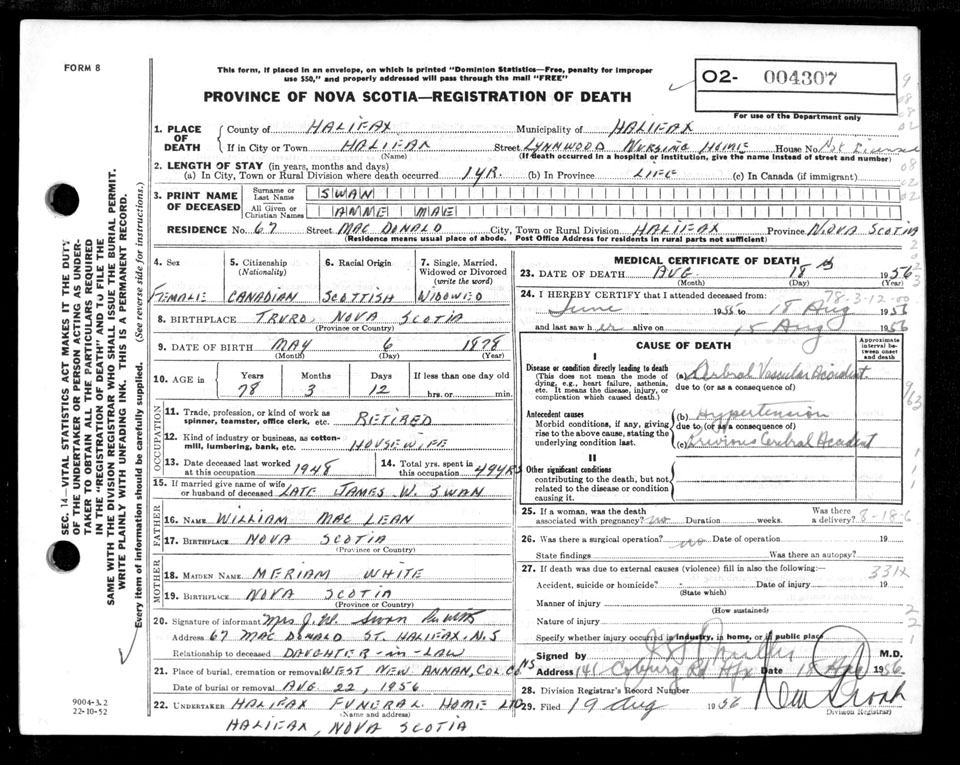 FORM 8
This form, if placed in an envelope, on which is printed "Dominion Statistics—Free, penalty for improper
use $50," and properly addressed will pass through the mail "FREE"
PROVINCE OF NOVA SCOTIA—REGISTRATION OF DEATH
O2- 004307
For use of the Department only
1. PLACE OF DEATH
County of HALIFAX Municipality of HALIFAX
If in City or Town HALIFAX Street LYNNWOOD NURSING HOME House No. Not Licensed
(Name) (If death occurred in a hospital or institution, give the name instead of street and number)
2. LENGTH OF STAY (in years, months and days)
(a) In City, Town or Rural Division where death occurred 1 YR. (b) In Province LIFE (c) In Canada (if immigrant)
3. PRINT NAME OF DECEASED
Surname or Last Name SWAN
All Given or Christian Names ANNIE MAE
RESIDENCE No. 67 Street MAC DONALD City, Town or Rural Division HALIFAX Province NOVA SCOTIA
(Residence means usual place of abode. Post Office Address for residents in rural parts not sufficient)
4. Sex FEMALE
5. Citizenship (Nationality) CANADIAN
6. Racial Origin SCOTTISH
7. Single, Married, Widowed or Divorced (write the word) WIDOWED
8. BIRTHPLACE TRURO, NOVA SCOTIA
(Province or Country)
9. DATE OF BIRTH MAY 6 1878
(Month) (Day) (Year)
10. AGE in Years Months Days If less than one day old
78 3 12 hrs. or min.
OCCUPATION
11. Trade, profession, or kind of work as spinner, teamster, office clerk, etc. RETIRED
12. Kind of industry or business, as cotton-mill, lumbering, bank, etc. HOUSEWIFE
13. Date deceased last worked at this occupation 1948
14. Total yrs. spent in this occupation 49 YRS
15. If married give name of wife or husband of deceased LATE JAMES W. SWAN
FATHER
16. NAME WILLIAM MAC LEAN
17. BIRTHPLACE NOVA SCOTIA
(Province or Country)
MOTHER
18. MAIDEN NAME MERIAM WHITE
19. BIRTHPLACE NOVA SCOTIA
(Province or Country)
20. Signature of informant Mrs J. W. Swan
Address 67 MAC DONALD ST. HALIFAX, N.S
Relationship to deceased DAUGHTER-IN-LAW
21. Place of burial, cremation or removal WEST NEW ANNAN, COL. CO. NS
Date of burial or removal AUG 22, 1956
22. UNDERTAKER HALIFAX FUNERAL HOME LTD
(Name and address)
HALIFAX, NOVA SCOTIA
MEDICAL CERTIFICATE OF DEATH
23. DATE OF DEATH AUG 18th 1956
(Month) (Day) (Year)
78-3-12-00
24. I HEREBY CERTIFY that I attended deceased from:
June 1955 to 18 Aug 1956
and last saw her alive on 15 Aug 1956
CAUSE OF DEATH
Approximate interval between onset and death
I
Disease or condition directly leading to death
(This does not mean the mode of dying, e.g., heart failure, asthenia, etc. It means the disease, injury, or complication which caused death.)
(a) Cerbral Vascular Accident
due to (or as a consequence of)
Antecedent causes
Morbid conditions, if any, giving rise to the above cause, stating the underlying condition last.
(b) Hypertension
due to (or as a consequence of)
(c) Previous Cerebral Accident
II
Other significant conditions
contributing to the death, but not related to the disease or condition causing it.
25. If a woman, was the death associated with pregnancy? no Duration weeks. Was there a delivery? 8-18-6
26. Was there a surgical operation? no Date of operation 19
State findings Was there an autopsy?
27. If death was due to external causes (violence) fill in also the following:— 331x
Accident, suicide or homicide? Date of injury 19
(State which)
Manner of injury
(How sustained)
Nature of injury
Specify whether injury occurred in industry, in home, or in public place
Signed by M.D.
Address 141 Coburg Rd Hfx Date 18 Aug 1956
28. Division Registrar's Record Number
29. Filed 19 Aug 1956
(Division Registrar)
SEC. 14—VITAL STATISTICS ACT MAKES IT THE DUTY
OF THE UNDERTAKER OR PERSON ACTING AS UNDER-
TAKER TO OBTAIN ALL THE PARTICULARS REQUIRED
IN THE "REGISTRATION OF DEATH" AND TO FILE THE
SAME WITH THE DIVISION REGISTRAR WHO SHALL ISSUE THE BURIAL PERMIT.
WRITE PLAINLY WITH UNFADING INK. THIS IS A PERMANENT RECORD.
Every item of information should be carefully supplied. (See reverse side for instructions.)
9004-3.2
22-10-52